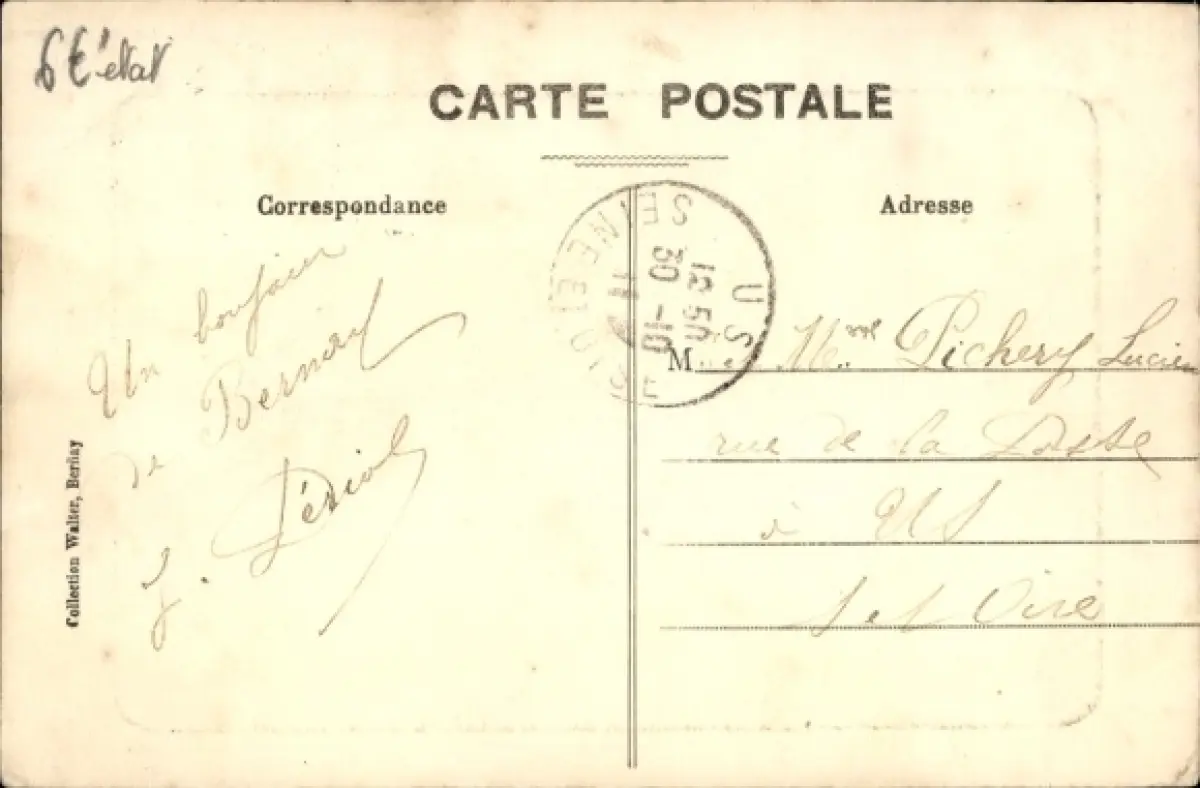 6 € état
CARTE POSTALE
Correspondance
Adresse
US
SEINE ET OISE
12 50
30 -10
11
Un bonjour
de Bernay
J. Dériot
M. Mme Pichery Lucien
rue de la
à US
S et Oise
Collection Walter, Bernay